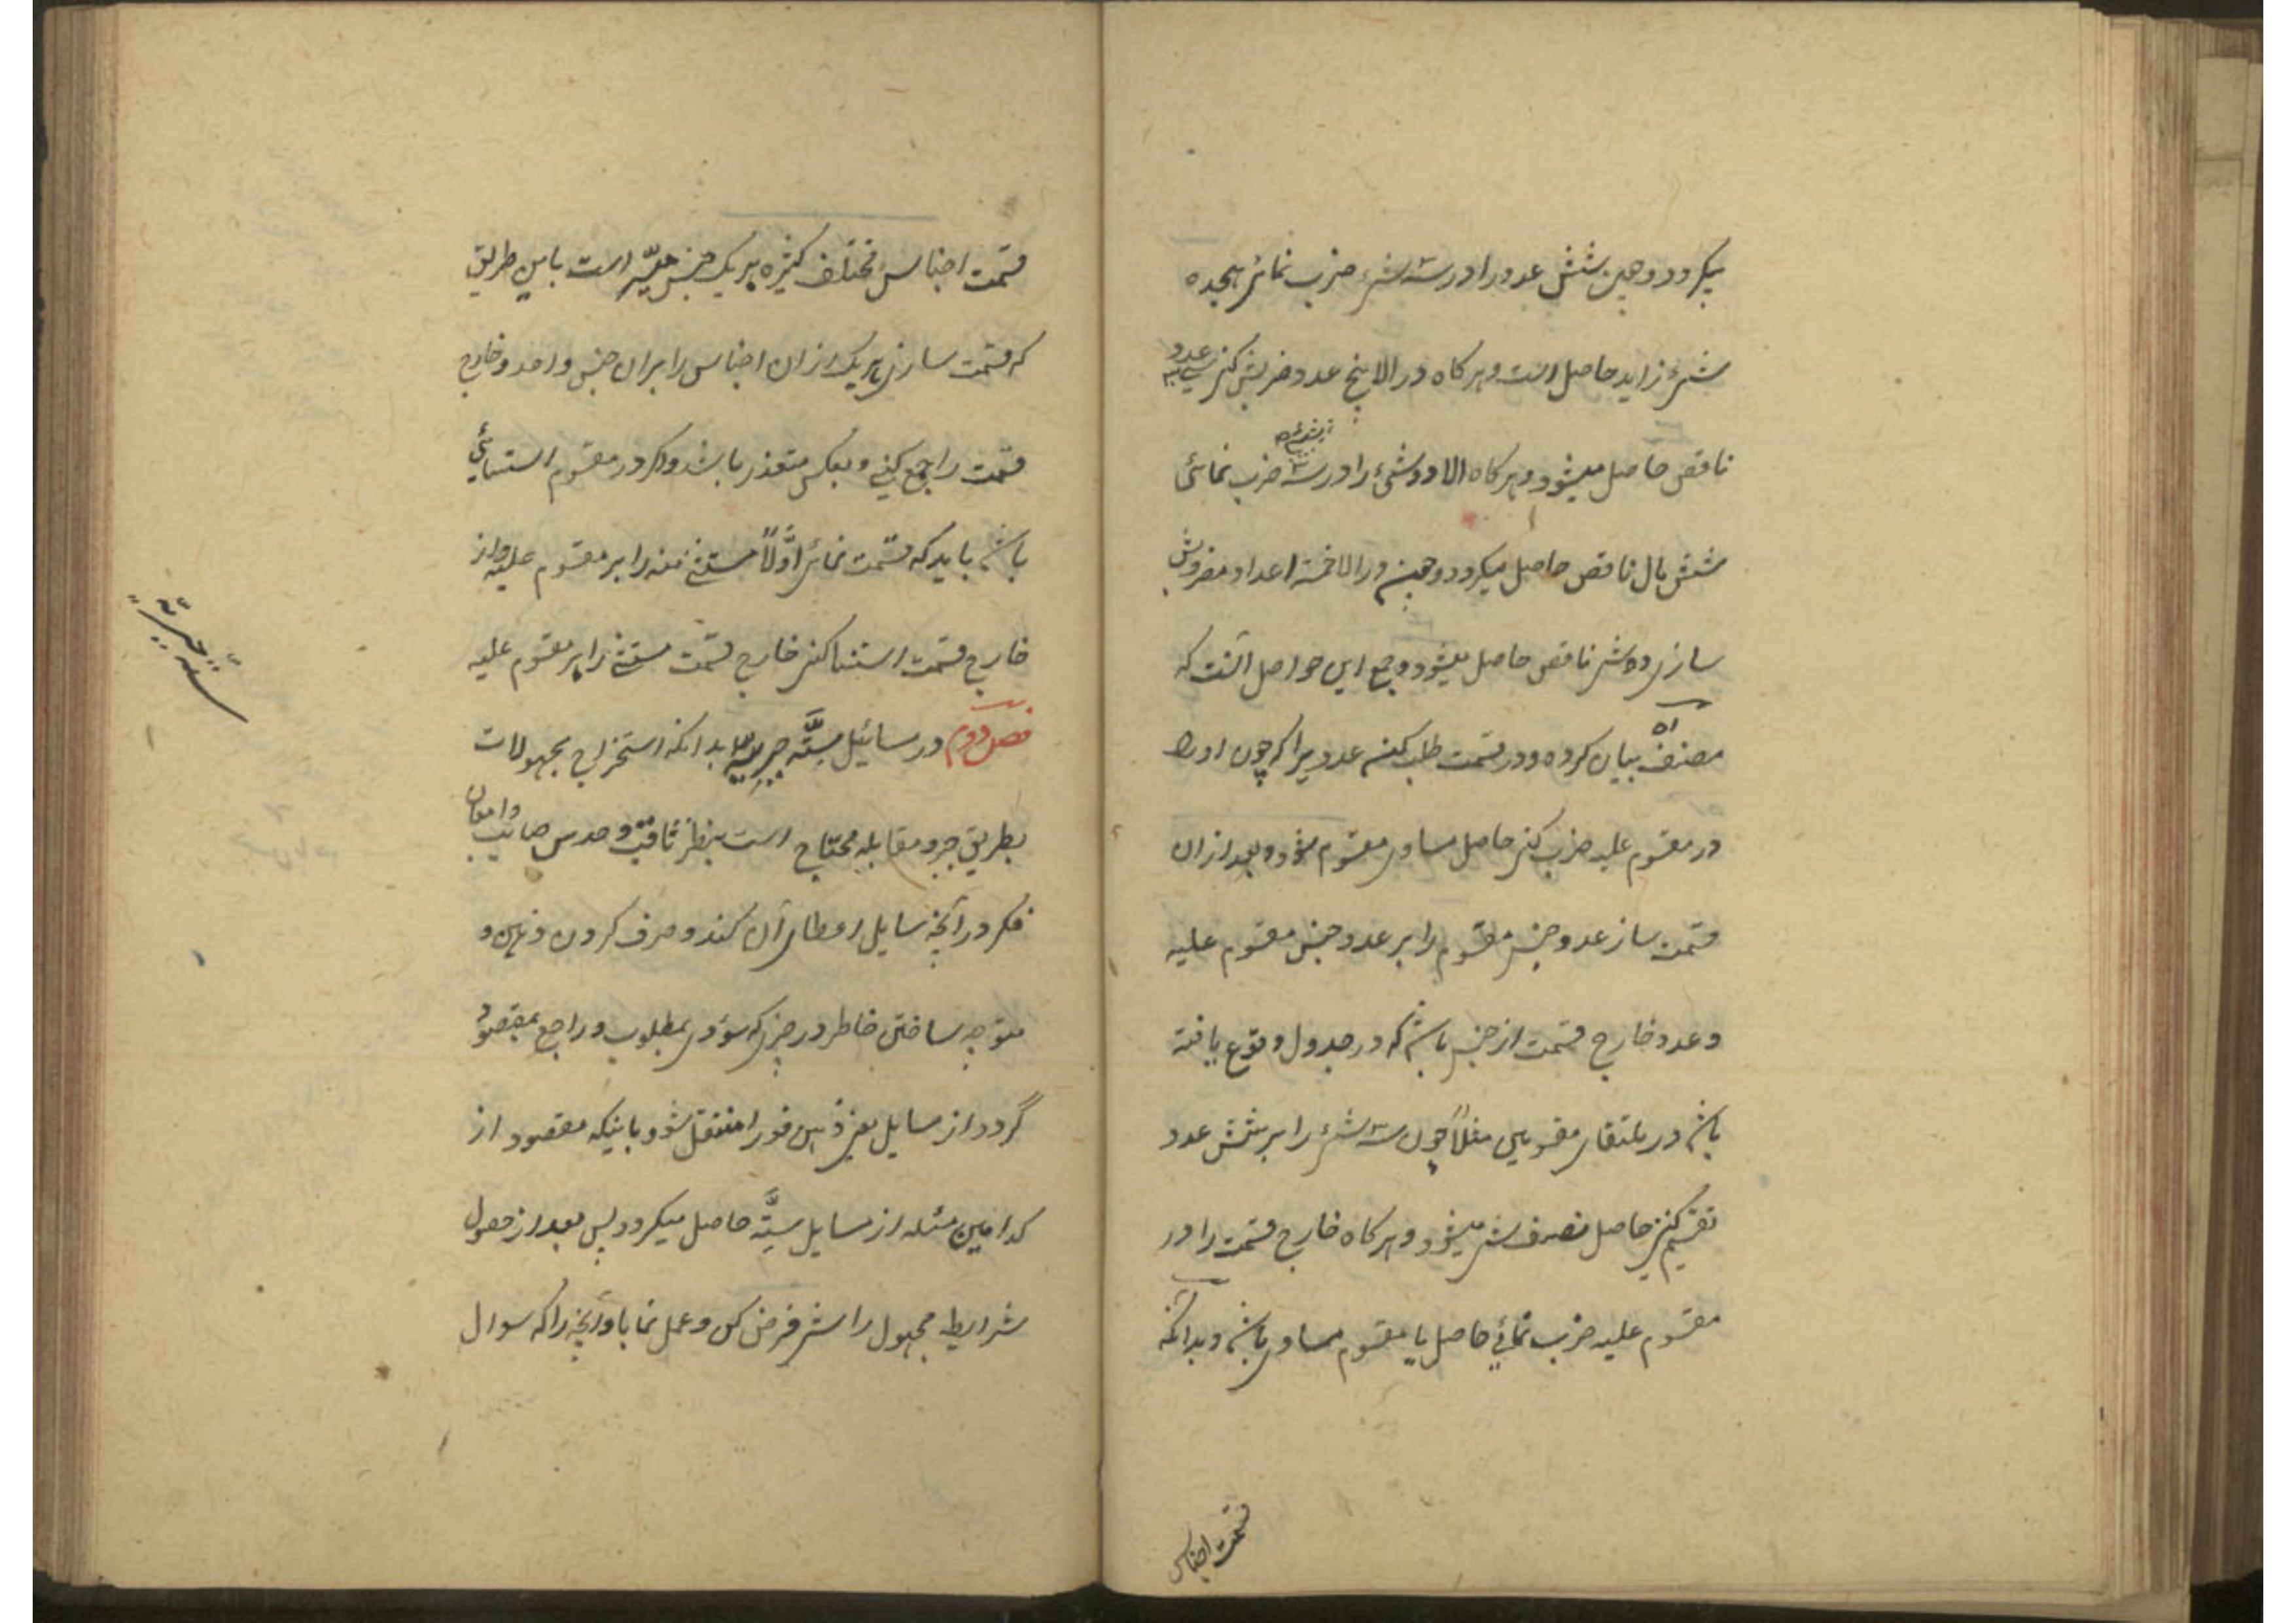 میکردد و همین شش عدد را در سه شیء ضرب نمائی هیجده
شیء زاید حاصل است و هر کاه در الا پنج عدد ضربش کنی سی عدد
ناقص حاصل میشود و هر کاه الا دو شیء را در سه ضرب نمائی
شش مال ناقص حاصل میکردد و همین در الا خمسه اعداد مضروبش
سازی ده شی ناقص حاصل میشود و جمع این حواصل آنست که
مصنف ره بیان کرده و در قسمت طلب کنی عددیرا که چون او را
در مقسوم علیه ضرب کنی حاصل مساوی مقسوم شود و بعد از ان
قسمت ساز عدد جنس مقسوم را بر عدد جنس مقسوم علیه
و عدد خارج قسمت از جنسی باشد که در جدول وقوع یافته
باشد در ملتقای مقسومین مثلاً چون سه شیء را بر شش عدد
تقسیم کنی حاصل نصف شی میشود و هر کاه خارج قسمت را در
مقسوم علیه ضرب نمائی حاصل با مقسوم مساوی باشد و بدانکه
قسمت اجناس
قسمت اجناس مختلف کثیره بر یک جنس است باین طریق
که قسمت سازی هر یک از ان اجناس را بران جنس واحد و خارج
قسمت را جمع کنی و بعکس متعذر باشد و اکر در مقسوم استثنائی
باشد باید که قسمت نمائی اوّلاً مستثنی منه را بر مقسوم علیه و از
خارج قسمت استثنا کنی خارج قسمت مستثنی را بر مقسوم علیه
فصل دوم در مسائیل ستّه جبریّه بدانکه استخراج مجهولات
بطریق جبر و مقابله محتاج است بنظر ثاقب و حدس صایب و امعان
فکر در آنچه سایل اعطای آن کند و صرف کردن ذهن و
متوجه ساختن خاطر در چیزی که مؤدی بمطلوب و راجع بمقصود
گردد از مسایل یعنی ذهن فورا منتقل شود باینکه مقصود از
کدامین مسئله از مسایل ستّه حاصل میکردد پس بعد از حصول
شرایط مجهول را شی فرض کن و عمل نما با و آنچه را که سوال
ستّه جبریّه